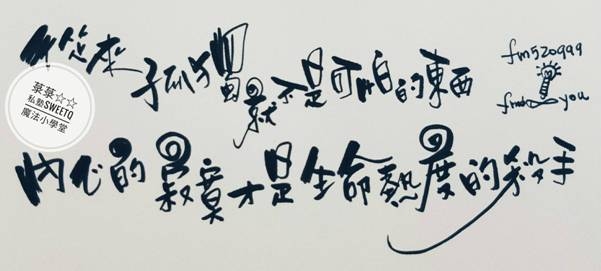 來孤獨就不是可怕的東西
內心的寂寞才是生命熱度的殺手
私塾SWEETQ
魔法小學堂
you